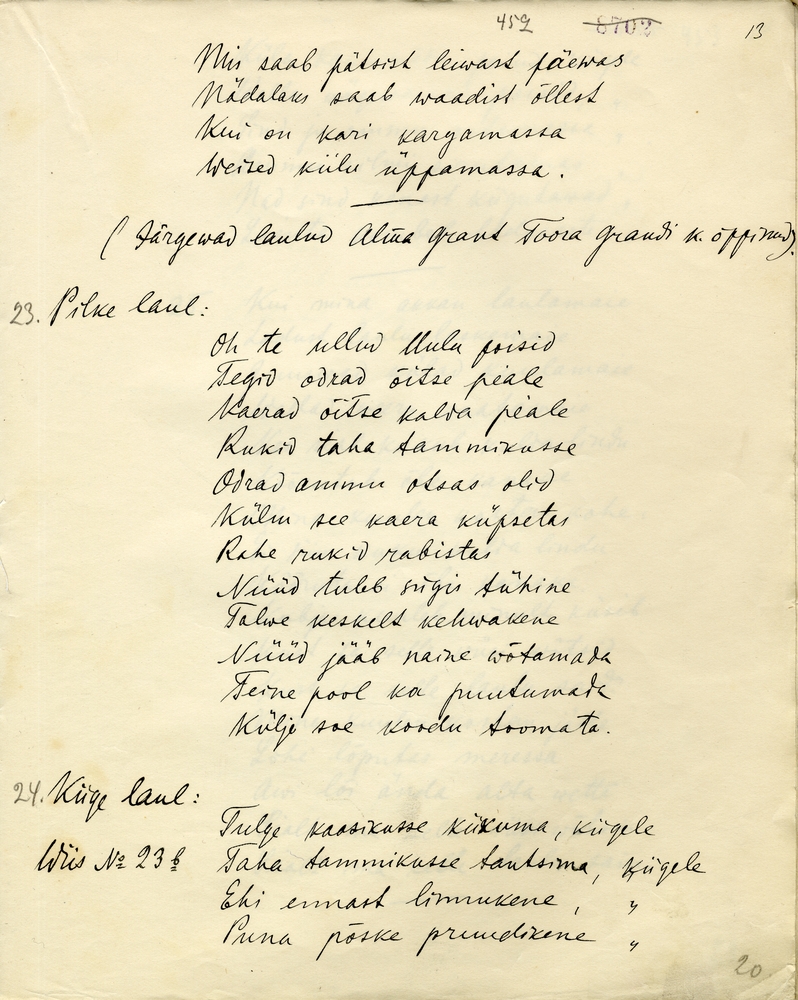 459 8702 13
Mis saab pätsist leiwast päewas
Nädalaks saab waadist õllest
Kui on kari kargamassa
Weised kiilu üppamassa.
( Järgewad laulud Alma Grant Toora Grandi k. õppinud).
23. Pilke laul:
Oh te ullud Uulu poisid
Tegid odrad õitse peale
Kaerad õitse kalda peale
Rukid taha tammikusse
Odrad ammu otsas olid
Külm see kaera küpsetas
Rahe rukid rabistas
Nüüd tuleb sügis tühine
Talwe keskelt kehwakene
Nüüd jääb naine wõtamada
Teine pool ka puutumada
Külje soe koodu toomata.
24. Kiige laul:
Tulge kaasikusse kiikuma, kiigele
Wiis № 23 b Taha tammikusse tantsima, kiigele
Ehi ennast linnukene, "
Puna põske pruudikene "
20